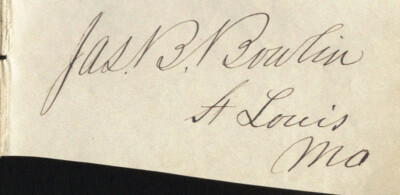 Jas. B. Bowlin
St Louis
Mo